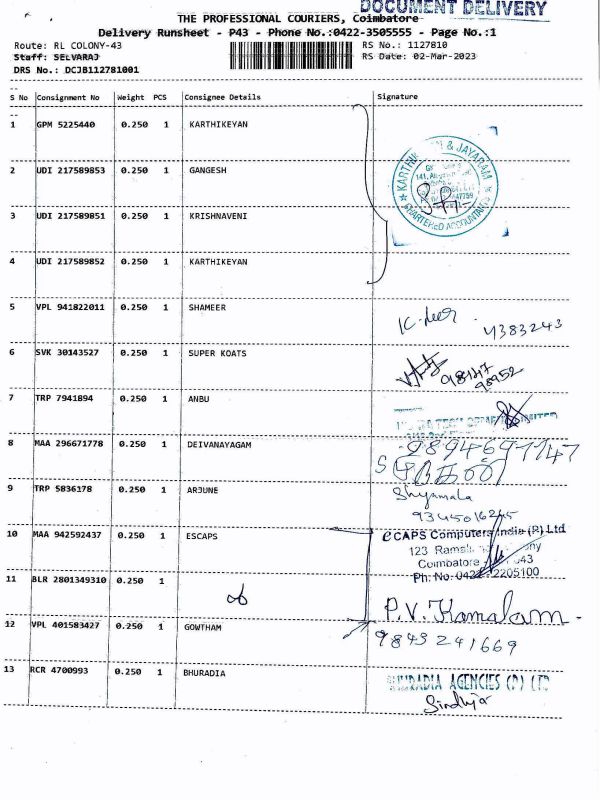 DOCUMENT DELIVERY
THE PROFESSIONAL COURIERS, Coimbatore
Delivery Runsheet - P43 - Phone No.:0422-3505555 - Page No.:1
Route: RL COLONY-43 RS No.: 1127810
Staff: SELVARAJ RS Date: 02-Mar-2023
DRS No.: DCJB112781001
S No Consignment No Weight PCS Consignee Details Signature
1 GPM 5225440 0.250 1 KARTHIKEYAN
& JAYARAM
CHARTERED ACCOUNTANTS
2 UDI 217589853 0.250 1 GANGESH
3 UDI 217589851 0.250 1 KRISHNAVENI
4 UDI 217589852 0.250 1 KARTHIKEYAN
5 VPL 941822011 0.250 1 SHAMEER
4383243
6 SVK 30143527 0.250 1 SUPER KOATS
98147
98952
7 TRP 7941894 0.250 1 ANBU
8 MAA 296671778 0.250 1 DEIVANAYAGAM
9894697747
9 TRP 5836178 0.250 1 ARJUNE
Shyamala
9345016245
10 MAA 942592437 0.250 1 ESCAPS
eCAPS Computers India (P) Ltd
123
Coimbatore 43
Ph: No. 0422 2205100
11 BLR 2801349310 0.250 1
P.V. Kamalam
12 VPL 401583427 0.250 1 GOWTHAM
9843241669
13 RCR 4700993 0.250 1 BHURADIA
BHURADIA AGENCIES (P) LTD
Sindhja